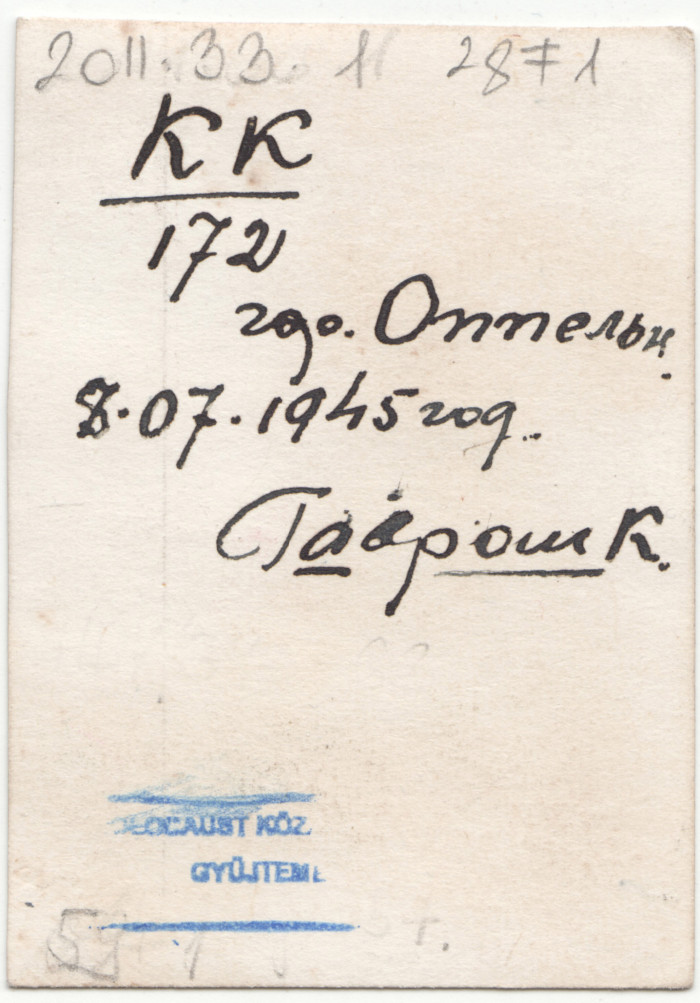 2011.33.1 2871
КК
172
гор. Оппельн.
8.07.1945 год.
Гаврош К.
HOLOCAUST KÖZ.
GYŰJTEMÉ